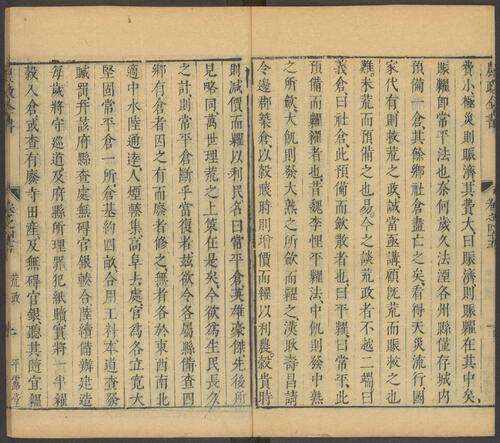 農政全書
卷之四十五
費小極災則賑濟其費大曰賑濟則賑糶在其中矣
賑糶卽常平法也奈何歲久法湮各州縣僅存城內
預備一倉其餘鄉社倉盡亡之矣看得天災流行國
家代有則救荒之政誠當亟講顧旣荒而賑救之也
難未荒而預備之也易今之談荒政者不越二端曰
義倉曰社倉此預備而斂散者也曰平糶曰常平此
預備而糶糴者也昔魏李悝平糴法中飢則發中熟
之所斂大飢則發大熟之所斂而糶之漢耿壽昌請
令邊郡築倉以穀賤時則增價而糴以利農穀貴時
則減價而糶以利民名曰常平倉英雄豪傑先後所
見略同萬世理荒之上策在是矣今欲爲生民長久
之計則常平倉斷乎當復者玆欲令各屬縣備查四
鄉有倉者因之有而廢者修之無者各於東西南北
適中水陸通達人煙輳集高阜去處官爲各立寬大
堅固常平倉一所倉基約四畝合用工料本道查發
贓罰幷該府縣查處無礙官銀輳合陸續備辦建造
每歲將守巡道及府縣所理罪犯紙贖實將一半糴
穀入倉或查有廢寺田產及無礙官銀聽其隨宜糴
農政全書
荒政
平露堂